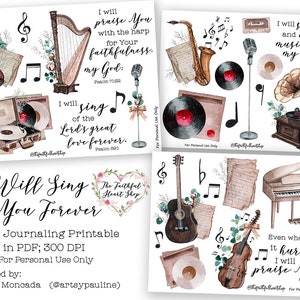 I will
praise You
with the harp
for Your
faithfulness,
my God.
Psalm 71:22
I will
sing
of the
Lord's great
love forever.
Psalm 89:1
@thefaithfulheartshop
For Personal Use Only
I will
and
music
my
@thefaithfulheartshop
For Personal Use Only
Even whe
it hur
I will
praise
@thefaithfulheartshop
For Pers
Will Sing
You Forever
The Faithful
Heart Shop
Journaling Printable
in PDF; 300 DPI
For Personal Use Only
ed by:
Moncada (@artsypauline)